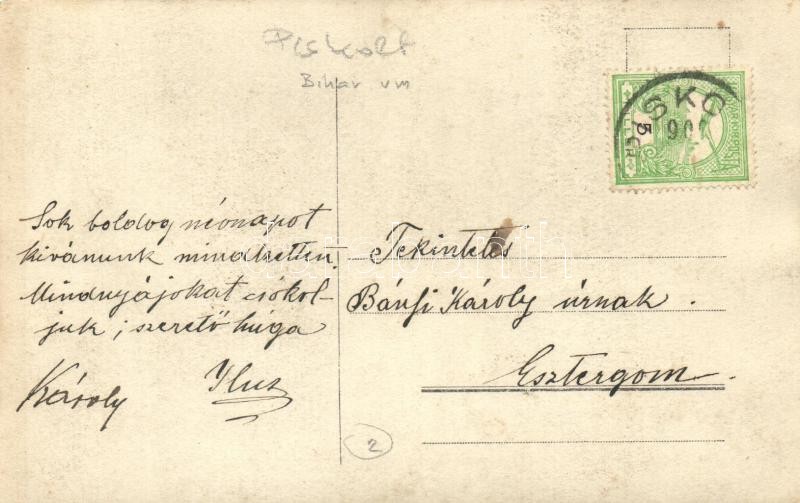 Piskolt
Bihar vm
SKO
5
Sok boldog névnapot
kivánunk mindketten.
Mindnyájokat csókol-
juk, szerető húga
Károly Ilus
Tekintetes
Bánfi Károly úrnak.
Esztergom.
2